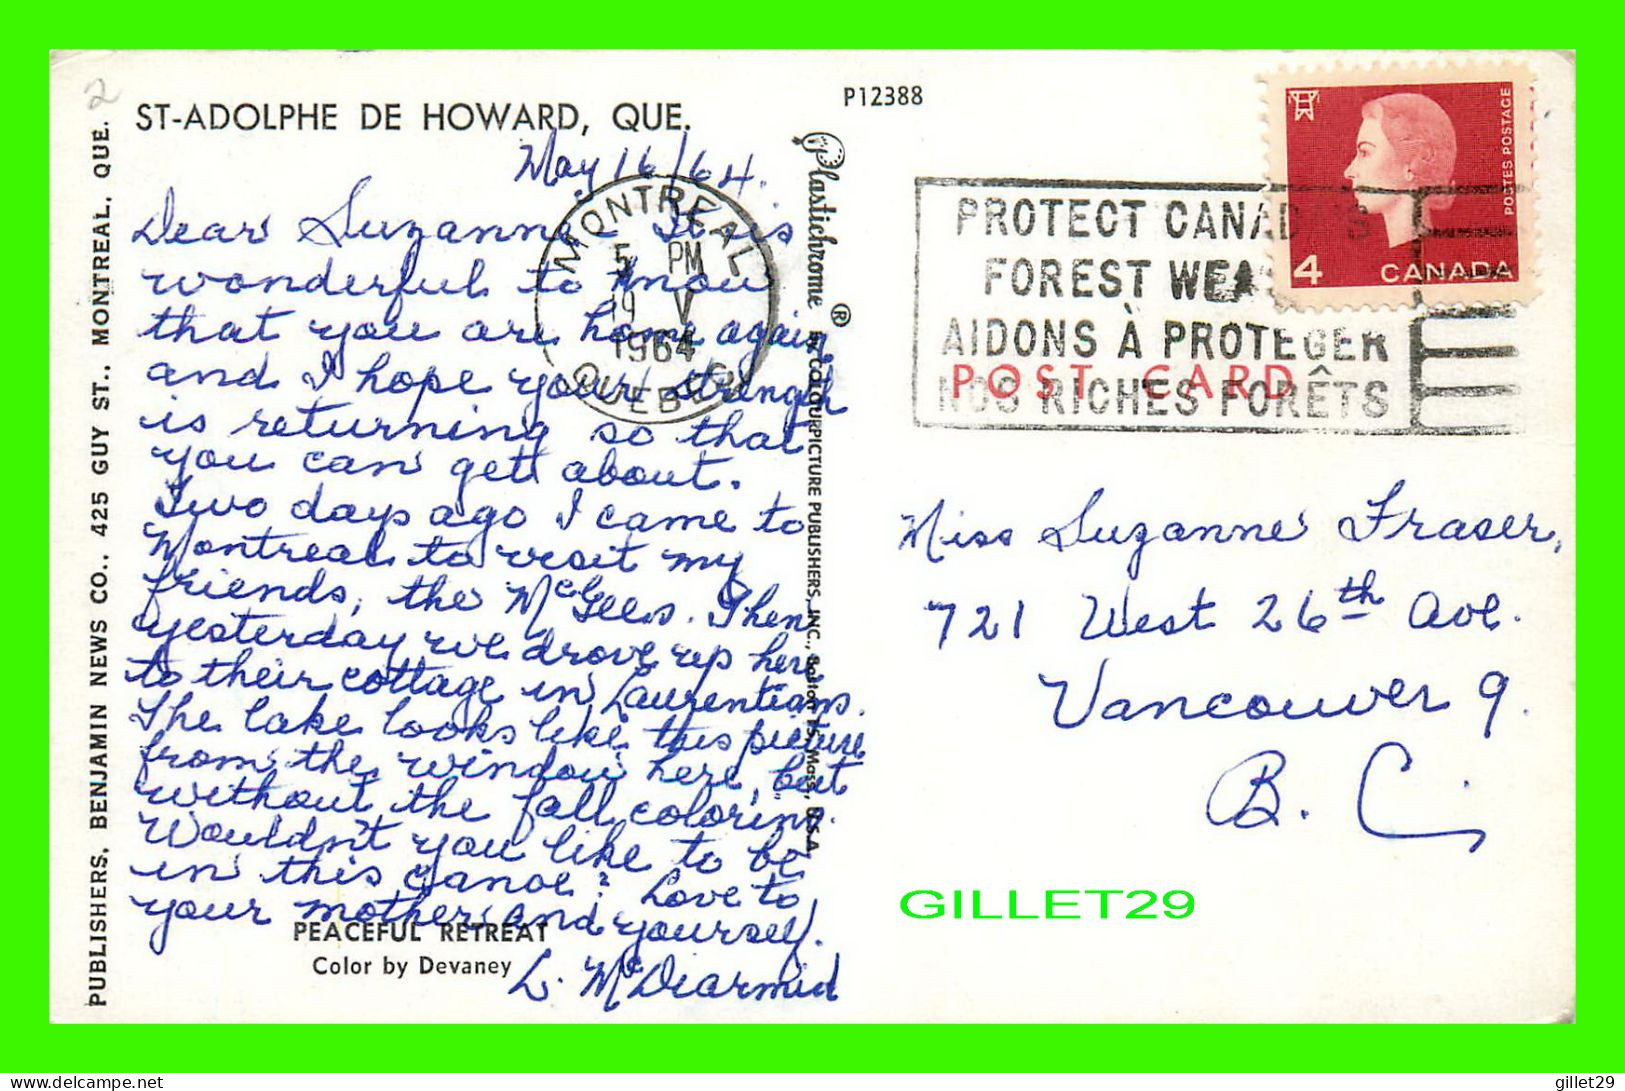 2
ST-ADOLPHE DE HOWARD, QUE.
May 16/64.
Dear Suzanne - It is
wonderful to know
that you are home again
and I hope your strength
is returning so that
you can get about.
Two days ago I came to
Montreal to visit my
friends, the McGees. Then
yesterday we drove up here
to their cottage in Laurentians.
The lake looks like this picture
from the window here, but
without the fall coloring.
Wouldn't you like to be
in this canoe? Love to
your mother and yourself.
L. McDiarmid
PEACEFUL RETREAT
Color by Devaney
PUBLISHERS. BENJAMIN NEWS CO.. 425 GUY ST.. MONTREAL. QUE.
MONTREAL
5 PM
V
1964
QUEBEC
P12388
Plastichrome ®
COLOURPICTURE PUBLISHERS, INC., Boston 15, Mass., U.S.A.
PROTECT CANADA'S
FOREST
AIDONS À PROTEGER
NOS RICHES FORÊTS
POST CARD
POSTES POSTAGE
4 CANADA
Miss Suzanne Fraser,
721 West 26th Ave.
Vancouver 9.
B. C.
GILLET29
delcampe.net
gillet29